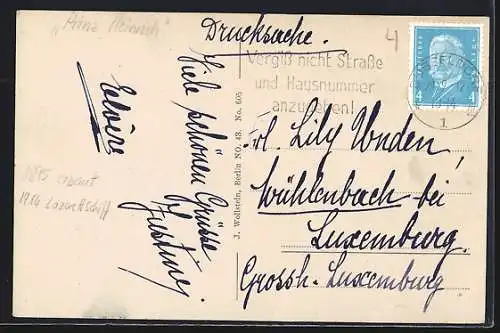 "Prinz Heinrich"
Drucksache.
4
Vergiß nicht Straße
und Hausnummer
anzugeben!
DEUTSCHES REICH
4 4
1
Viele schönen Grüsse
Elvire
1915 erbaut
1914 Lazarettschiff
J. Wollstein, Berlin NO. 43. No. 605
Frl. Lily Unden,
Mühlenbach bei
Luxemburg.
Grossh. Luxemburg